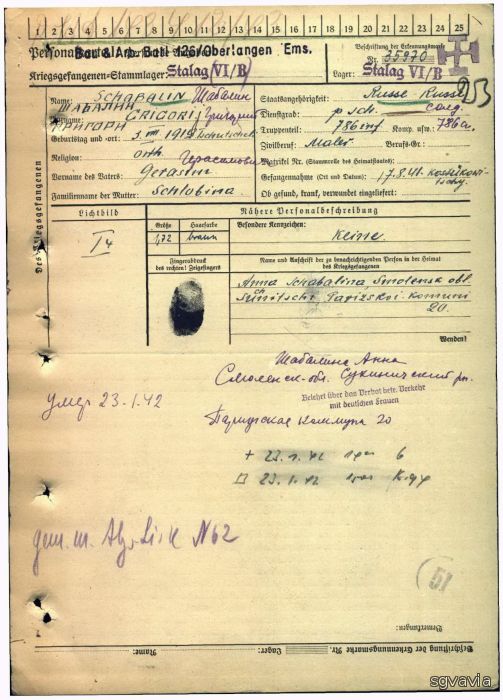 1 2 3 4 5 6 7 8 9 10 11 12 13 14 15 16 17 18 19 20 21 22 23 24 25
Personalkarte
Bau & Arb. Batl 126/Oberlangen Ems.
Beschriftung der Erkennungsmarke
Nr. 35970
Kriegsgefangenen-Stammlager: Stalag VI/B
Lager: Stalag VI/B
Des Kriegsgefangenen
Name: SCHABALIN Шабалин
ШАБАЛИН
Vorname: GRIGORI Григорий
ГРИГОРИ
Geburtstag und -ort: 3. VIII 1919
Religion: orth.
Vorname des Vaters: Gerasim Герасимович
Familienname der Mutter: Schlobina
Staatsangehörigkeit: Russe Russe
Dienstgrad: солд.
Truppenteil: 786 inf Komp. usw.: 786
Zivilberuf: Maler Berufs-Gr.:
Matrikel Nr. (Stammrolle des Heimatstaates):
Gefangennahme (Ort und Datum): 17.8.41.
Ob gesund, krank, verwundet eingeliefert:
Lichtbild
Nähere Personalbeschreibung
Größe Haarfarbe Besondere Kennzeichen:
1,72 braun Keine.
Fingerabdruck
des rechten! Zeigefingers
Name und Anschrift der zu benachrichtigenden Person in der Heimat
des Kriegsgefangenen
Anna Schabalina, Smolensk obl.
20.
Wenden!
Шабалина Анна
Смоленск. обл. Сухинический рн.
Belehrt über das Verbot betr. Verkehr
mit deutschen Frauen
Парижская Коммуна 20
умер 23.1.42
+ 23.1.42
23.1.42
gem. m. Abg. Liste N 62
51
Bemerkungen:
Beschriftung der Erkennungsmarke Nr.
Lager:
Name:
sgvavia